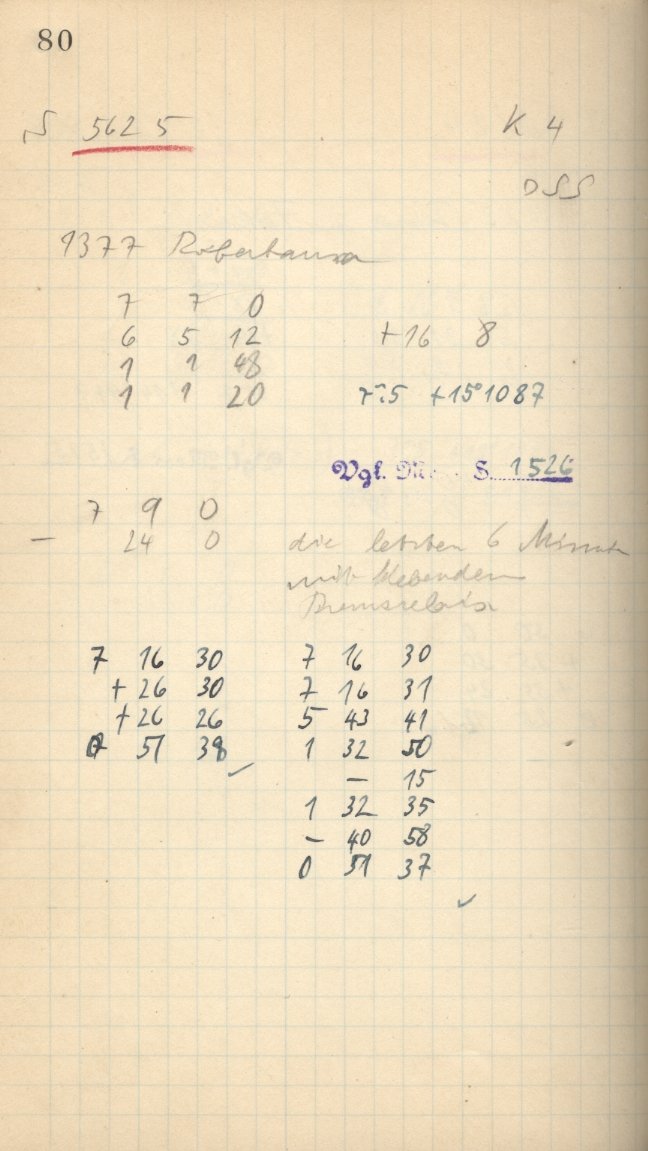 80
S 5625 K 4
DSS
1377 Roberbauxa
7 7 0
6 5 12 +16 8
1 1 48
1 1 20 +15°1087
Vgl. M S. 1526
7 9 0
— 24 0 die letzten 6 Minuten
mit klebendem
Bremsrelais
7 16 30 7 16 30
+ 26 30 7 16 31
+ 26 26 5 43 41
0 51 38 1 32 50
— 15
1 32 35
— 40 58
0 51 37